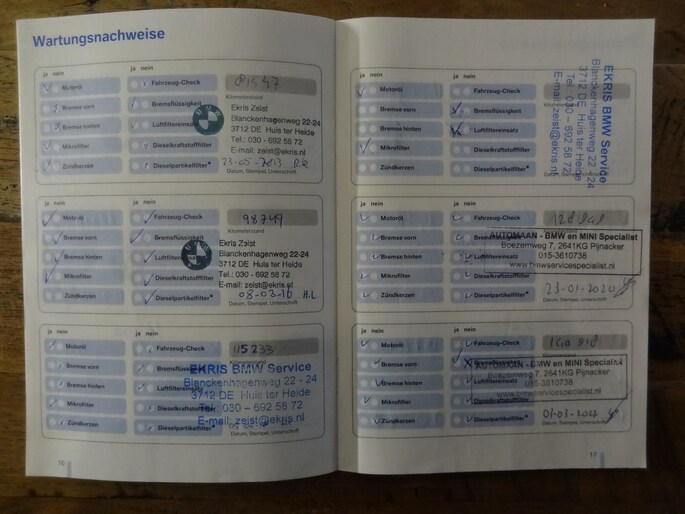 Wartungsnachweise
ja nein ja nein
Motoröl Fahrzeug-Check 81547
Bremse vorn Bremsflüssigkeit Kilometerstand
Bremse hinten Luftfiltereinsatz
Mikrofilter Dieselkraftstofffilter
Zündkerzen Dieselpartikelfilter*
Ekris Zeist
Blanckenhagenweg 22-24
3712 DE Huis ter Heide
Tel.: 030 - 692 58 72
E-mail: zeist@ekris.nl
23-05-2013
Datum, Stempel, Unterschrift
ja nein ja nein
Motoröl Fahrzeug-Check 98749
Bremse vorn Bremsflüssigkeit
Bremse hinten
Mikrofilter Dieselkraftstofffilter
Zündkerzen Dieselpartikelfilter*
Ekris Zeist
Blanckenhagenweg 22-24
3712 DE Huis ter Heide
Tel.: 030 - 692 58 72
E-mail: zeist@ekris.nl
08-03-16 H.L
Datum, Stempel, Unterschrift
ja nein ja nein
Motoröl Fahrzeug-Check 115233
Bremse vorn
Bremse hinten Luftfiltereinsatz
Mikrofilter Dieselkraftstofffilter
Zündkerzen Dieselpartikelfilter*
EKRIS BMW Service
Blanckenhagenweg 22 - 24
3712 DE Huis ter Heide
Tel.: 030 – 692 58 72
E-mail: zeist@ekris.nl
Datum, Stempel, Unterschrift
16
ja nein ja nein
Motoröl Fahrzeug-Check
Bremse vorn Bremsflüssigkeit
Bremse hinten Luftfiltereinsatz
Mikrofilter Dieselkraftstofffilter
Zündkerzen Dieselpartikelfilter*
EKRIS BMW Service
Blanckenhagenweg 22 - 24
3712 DE Huis ter Heide
Tel.: 030 – 692 58 72
E-mail: zeist@ekris.nl
Datum, Stempel, Unterschrift
ja nein ja nein
Motoröl Fahrzeug-Check
Bremse vorn
Bremse hinten
Mikrofilter Dieselkraftstofffilter
Zündkerzen Dieselpartikelfilter*
AUTOMAAN - BMW en MINI Specialist
Boezemweg 7, 2641KG Pijnacker
015-3610738
www.bmwservicespecialist.nl
23-01-2020
Datum, Stempel, Unterschrift
ja nein ja nein
Motoröl Fahrzeug-Check
Bremse vorn Bremsflüssigkeit
Bremse hinten Luftfiltereinsatz
Mikrofilter Dieselkraftstofffilter
Zündkerzen Dieselpartikelfilter*
AUTOMAAN - BMW en MINI Specialist
Boezemweg 7, 2641KG Pijnacker
015-3610738
www.bmwservicespecialist.nl
Datum, Stempel, Unterschrift
17